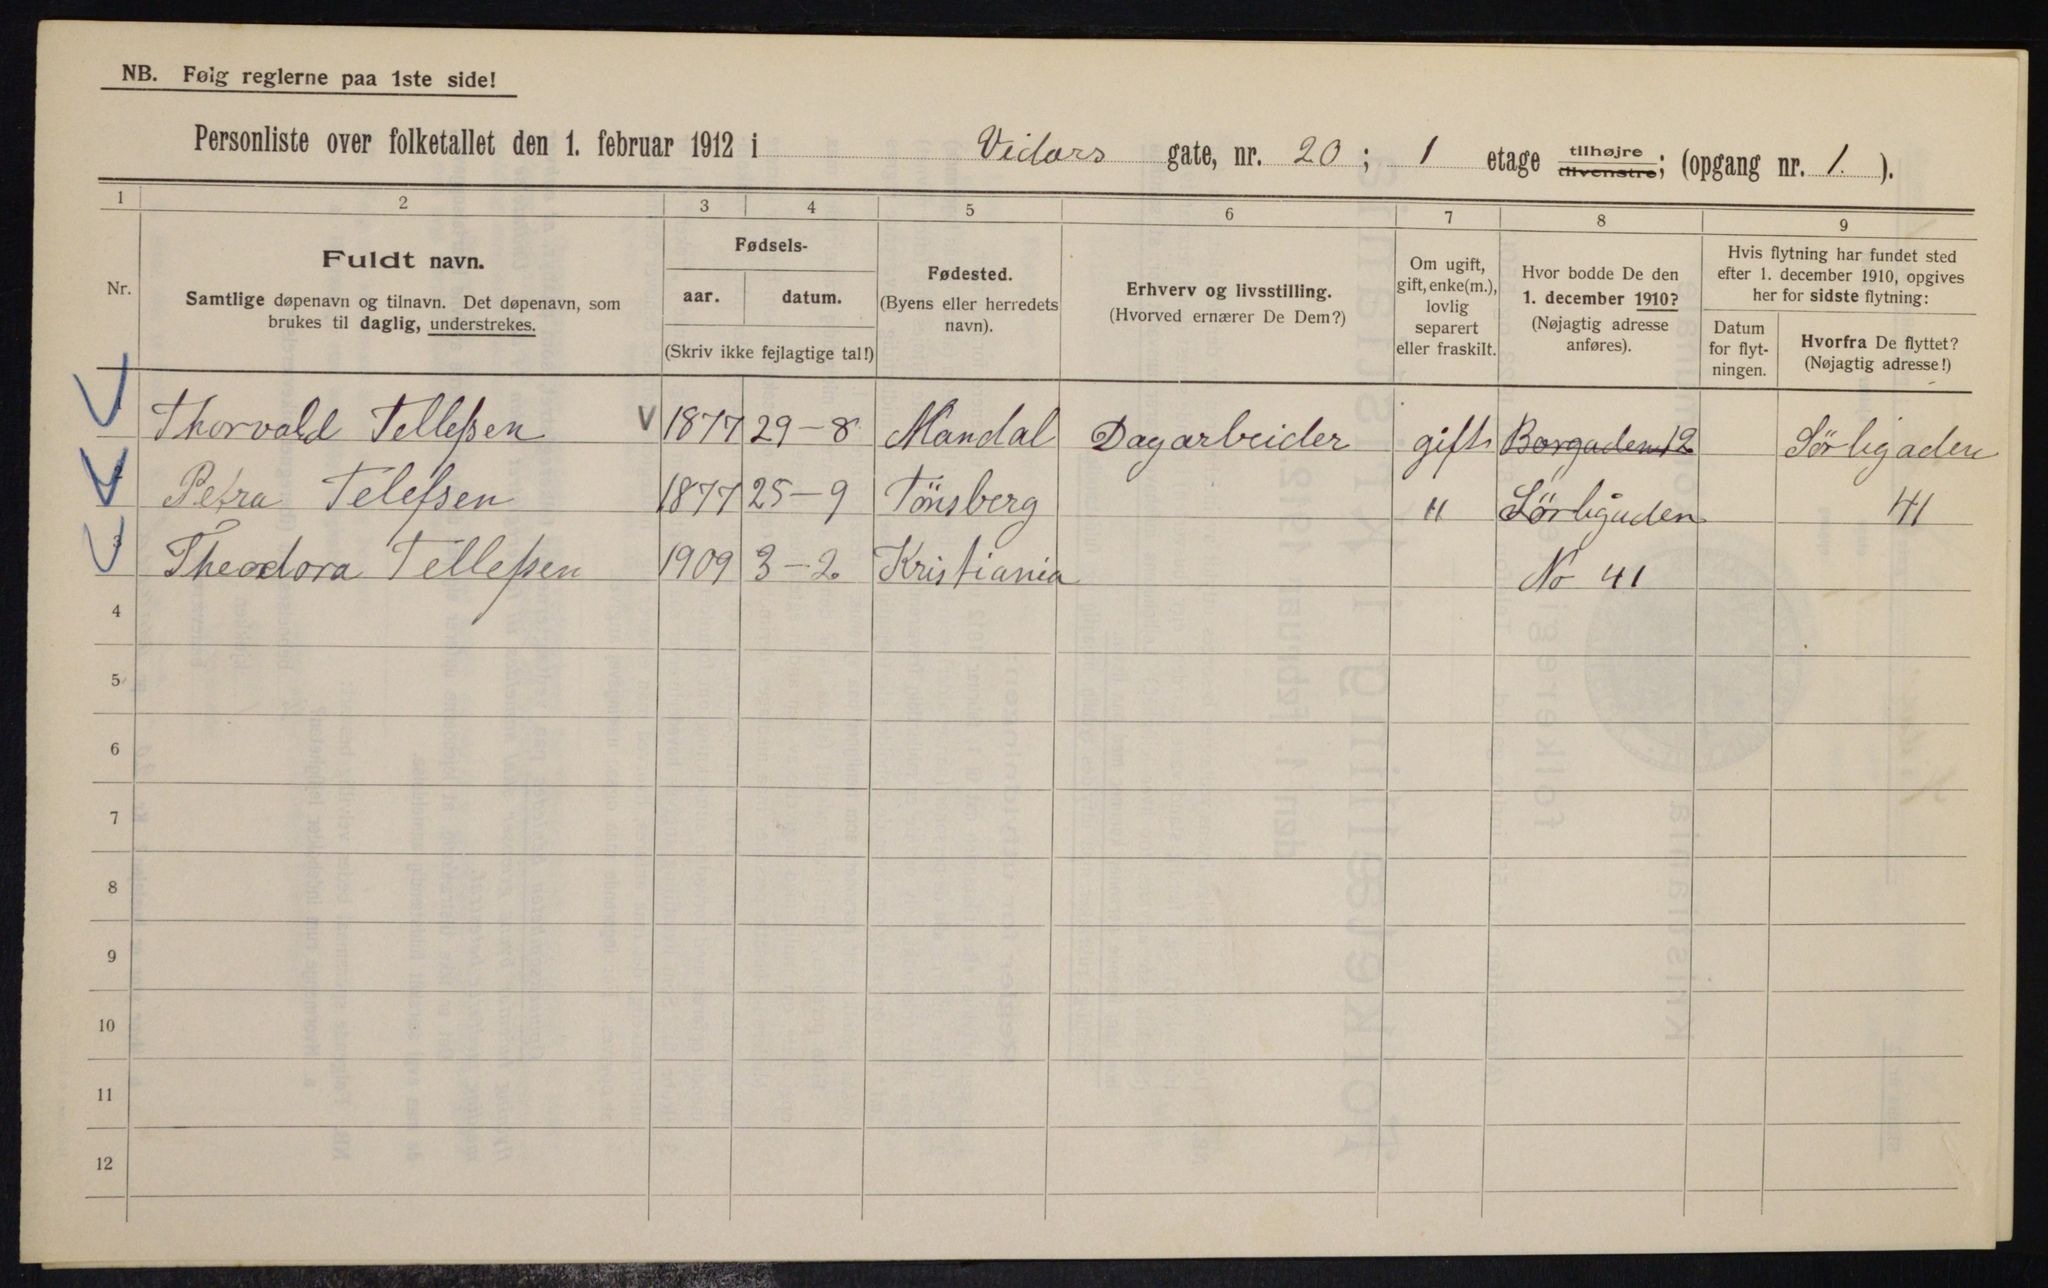 NB. Følg reglerne paa 1ste side!
Personliste over folketallet den 1. februar 1912 i Vidars gate, nr. 20; 1 etage tilhøjre tilvenstre; (opgang nr. 1.).
1 2 3 4 5 6 7 8 9
Nr.
Fuldt navn.
Samtlige døpenavn og tilnavn. Det døpenavn, som
brukes til daglig, understrekes.
Fødsels-
aar. datum.
(Skriv ikke fejlagtige tal!)
Fødested.
(Byens eller herredets
navn).
Erhverv og livsstilling.
(Hvorved ernærer De Dem?)
Om ugift,
gift, enke(m.),
lovlig
separert
eller fraskilt.
Hvor bodde De den
1. december 1910?
(Nøjagtig adresse
anføres).
Hvis flytning har fundet sted
efter 1. december 1910, opgives
her for sidste flytning:
Datum
for flyt-
ningen.
Hvorfra De flyttet?
(Nøjagtig adresse!)
1 Thorvald Tellefsen V 1877 29-8 Mandal Dagarbeider gift Borgaden 12 Sørligaden
2 Petra Telefsen 1877 25-9 Tönsberg " Sörligaden 41
3 Theodora Tellefsen 1909 3-2 Kristiania No 41
4
5
6
7
8
9
10
11
12